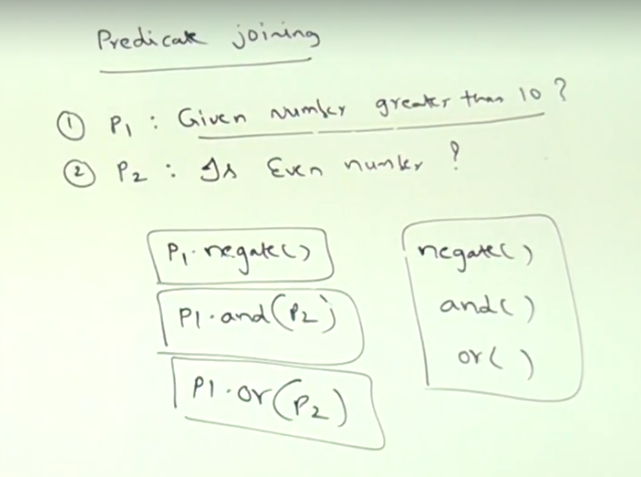 Predicate joining
① P1 : Given number greater than 10 ?
② P2 : Is Even number ?
P1.negate()
P1.and(P2)
P1.or(P2)
negate()
and()
or( )